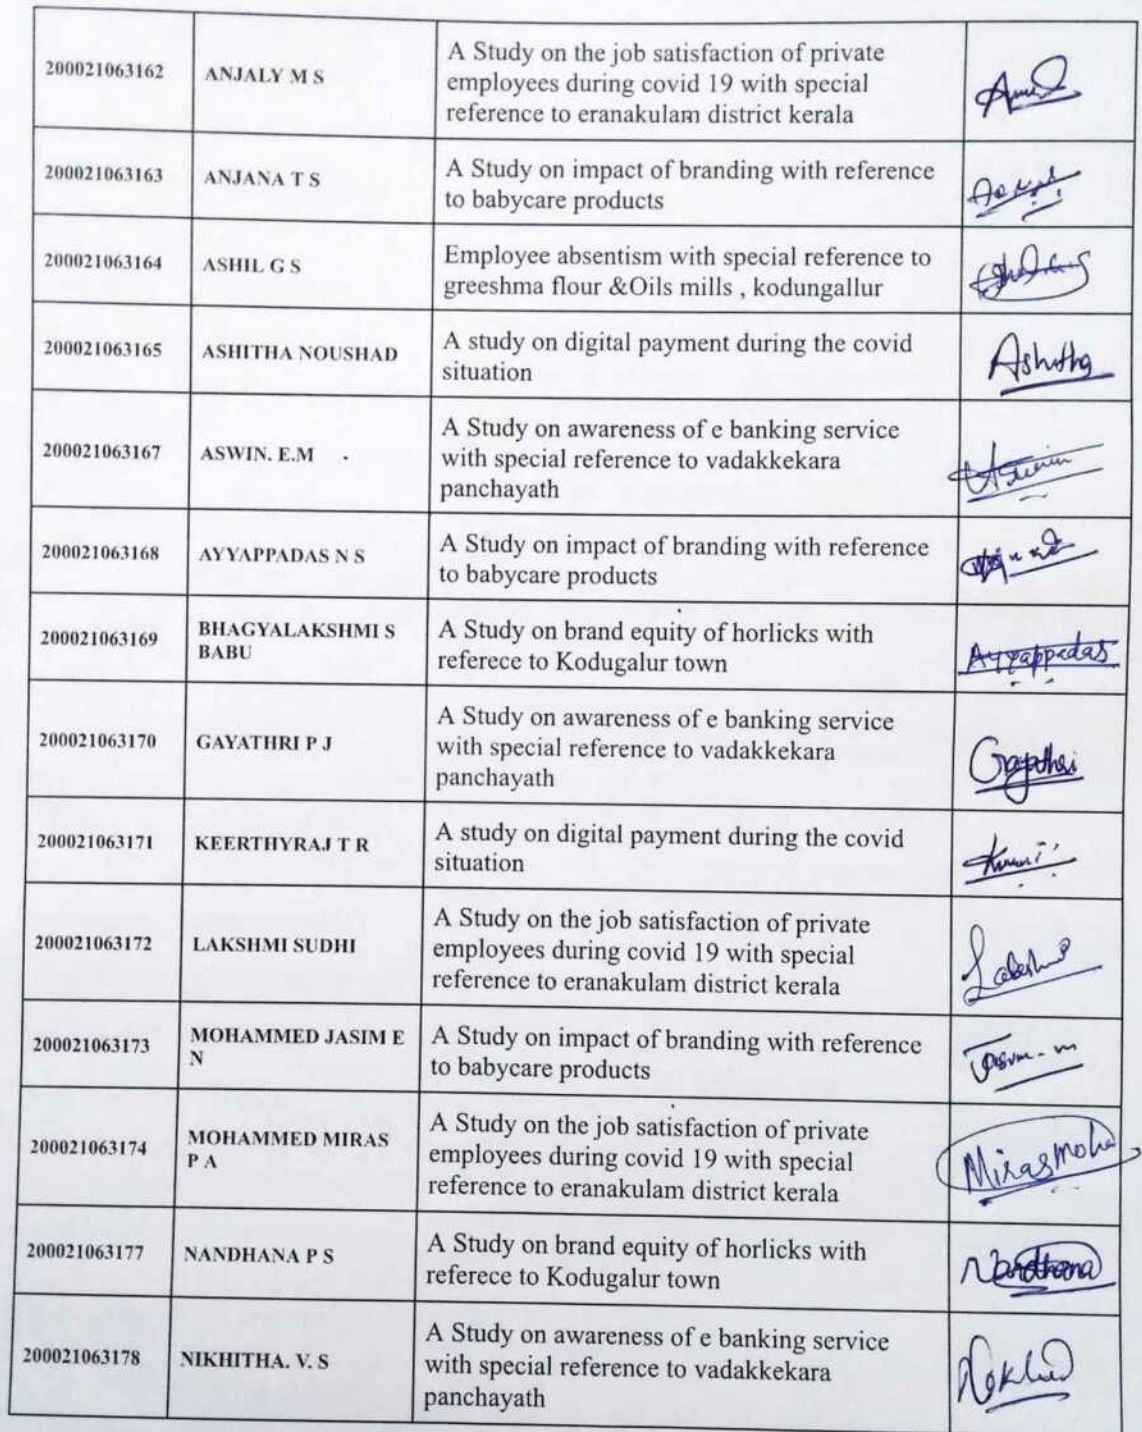 200021063162
ANJALY M S
A Study on the job satisfaction of private
employees during covid 19 with special
reference to eranakulam district kerala
200021063163
ANJANA T S
A Study on impact of branding with reference
to babycare products
200021063164
ASHIL G S
Employee absentism with special reference to
greeshma flour &Oils mills , kodungallur
200021063165
ASHITHA NOUSHAD
A study on digital payment during the covid
situation
Ashitha
200021063167
ASWIN. E.M
A Study on awareness of e banking service
with special reference to vadakkekara
panchayath
200021063168
AYYAPPADAS N S
A Study on impact of branding with reference
to babycare products
200021063169
BHAGYALAKSHMI S
BABU
A Study on brand equity of horlicks with
referece to Kodugalur town
Ayyappadas
200021063170
GAYATHRI P J
A Study on awareness of e banking service
with special reference to vadakkekara
panchayath
200021063171
KEERTHYRAJ T R
A study on digital payment during the covid
situation
200021063172
LAKSHMI SUDHI
A Study on the job satisfaction of private
employees during covid 19 with special
reference to eranakulam district kerala
Lakshmi
200021063173
MOHAMMED JASIM E
N
A Study on impact of branding with reference
to babycare products
200021063174
MOHAMMED MIRAS
P A
A Study on the job satisfaction of private
employees during covid 19 with special
reference to eranakulam district kerala
Miras moha
200021063177
NANDHANA P S
A Study on brand equity of horlicks with
referece to Kodugalur town
Nandhana
200021063178
NIKHITHA. V. S
A Study on awareness of e banking service
with special reference to vadakkekara
panchayath